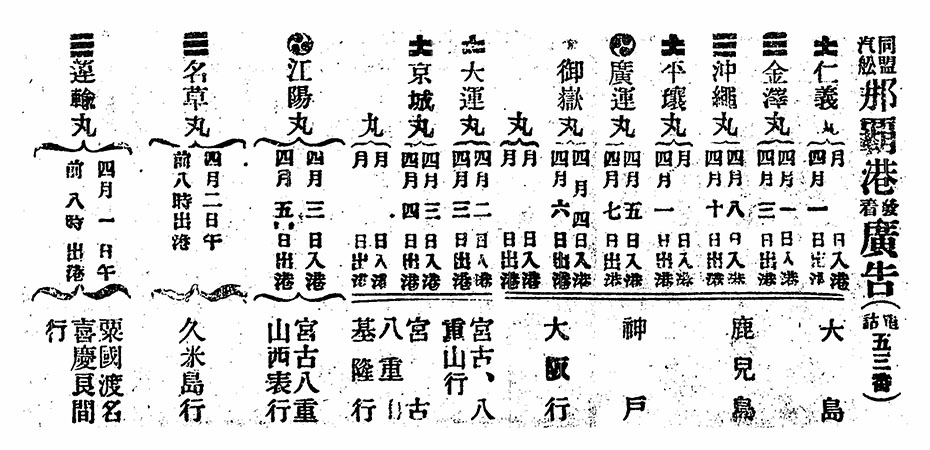 同盟汽舩那覇港發着廣告(電話五三番)
仁義丸
月 日入港
四月一日出港
金澤丸
四月一日入港
四月三日出港
沖繩丸
四月八日入港
四月十日出港
平壤丸
月 日入港
四月一日出港
廣運丸
四月五日入港
四月七日出港
御嶽丸
四月四日入港
四月六日出港
丸
月 日入港
月 日出港
大島
鹿兒島
神戸
大阪行
大運丸
四月二日入港
四月三日出港
京城丸
四月三日入港
四月四日出港
丸
月 日入港
月 日出港
宮古、八
重山行
宮古
八重山
基隆行
江陽丸
四月三日入港
四月五日出港
宮古八重
山西表行
名草丸
四月二日午
前八時出港
久米島行
運輸丸
四月一日午
前八時出港
粟國渡名
喜慶良間
行